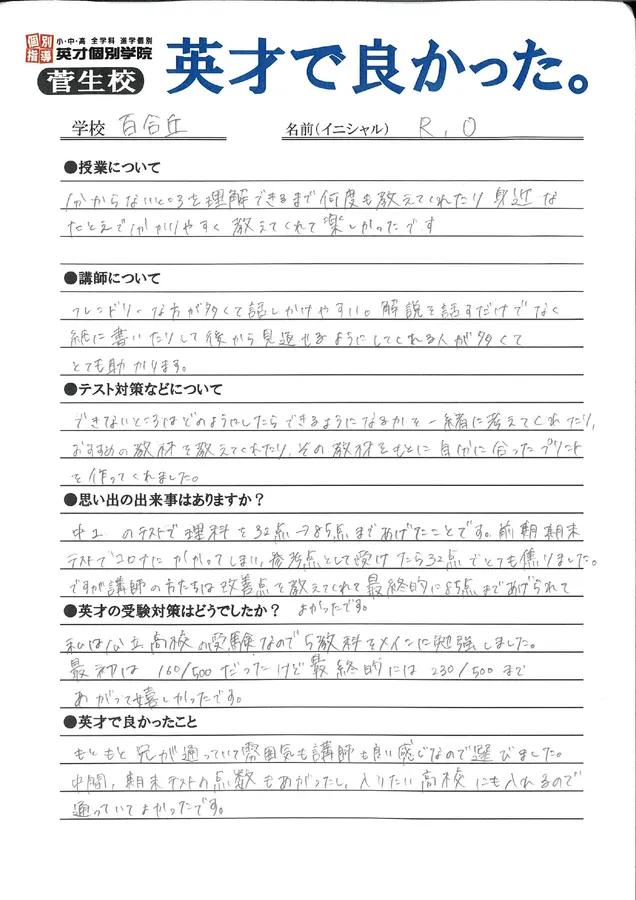 個別指導
小・中・高 全学科 進学個別
英才個別学院
菅生校
英才で良かった。
学校 百合丘 名前(イニシャル) R.O
●授業について
分からないところを理解できるまで何度も教えてくれたり身近な
たとえで分かりやすく教えてくれて楽しかったです
●講師について
フレンドリーな方が多くて話しかけやすい。解説を話すだけでなく
紙に書いたりして後から見返せるようにしてくれる人が多くて
とても助かります。
●テスト対策などについて
できないところはどのようにしたらできるようになるかを一緒に考えてくれたり、
おすすめの教材を教えてくれたり、その教材をもとに自分に合ったプリント
を作ってくれました。
●思い出の出来事はありますか?
中2のテストで理科を32点→85点まであげたことです。前期期末
テストでコロナにかかってしまい、参考点として受けたら32点でとても焦りました。
ですが講師の方たちは改善点を教えてくれて最終的に85点まであげられて
●英才の受験対策はどうでしたか? よかったです。
私は公立高校の受験なので5教科をメインに勉強しました。
最初は160/500だったけど最終的には230/500まで
あがって嬉しかったです。
●英才で良かったこと
もともと兄が通っていて雰囲気も講師も良い感じなので選びました。
中間、期末テストの点数もあがったし、入りたい高校にも入れるので
通っていてよかったです。